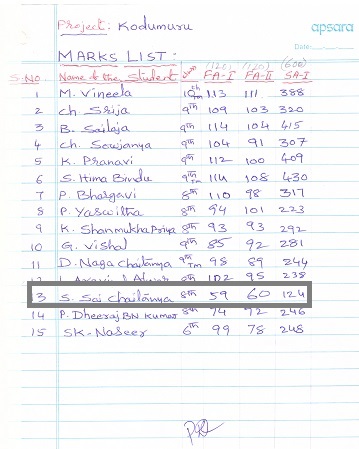 Project: Kodumuru
apsara
Date:
MARKS LIST:
(120) (120) (600)
S.NO. Name of the Student FA-I FA-II SA-I
1 M. Vineela 10th 113 111 388
2 Ch Srija 9th 109 103 320
3 B. Sailaja 9th 114 104 415
4 Ch. Sowjanya 9th 104 91 307
5 K. Pranavi 9th 112 100 409
6 S. Hima Bindu 9th 114 108 430
7 P. Bhargavi 8th 110 98 317
8 P. Yaswitha 8th 94 101 223
9 K. Shanmukha Priya 8th 93 93 292
10 G. Vishal 9th 85 92 281
11 D. Naga Chaitanya 9th Tm 98 89 244
102 95 238
13 S. Sai Chaitanya 8th 59 60 124
14 P. Dheeraj BN Kumar 8th 74 92 246
15 SK. Naseer 6th 99 78 248